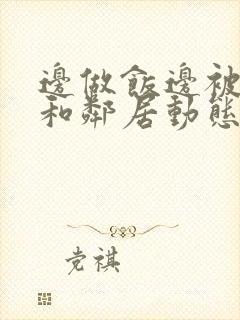 邊做飯邊被
和鄰居動態
党祺